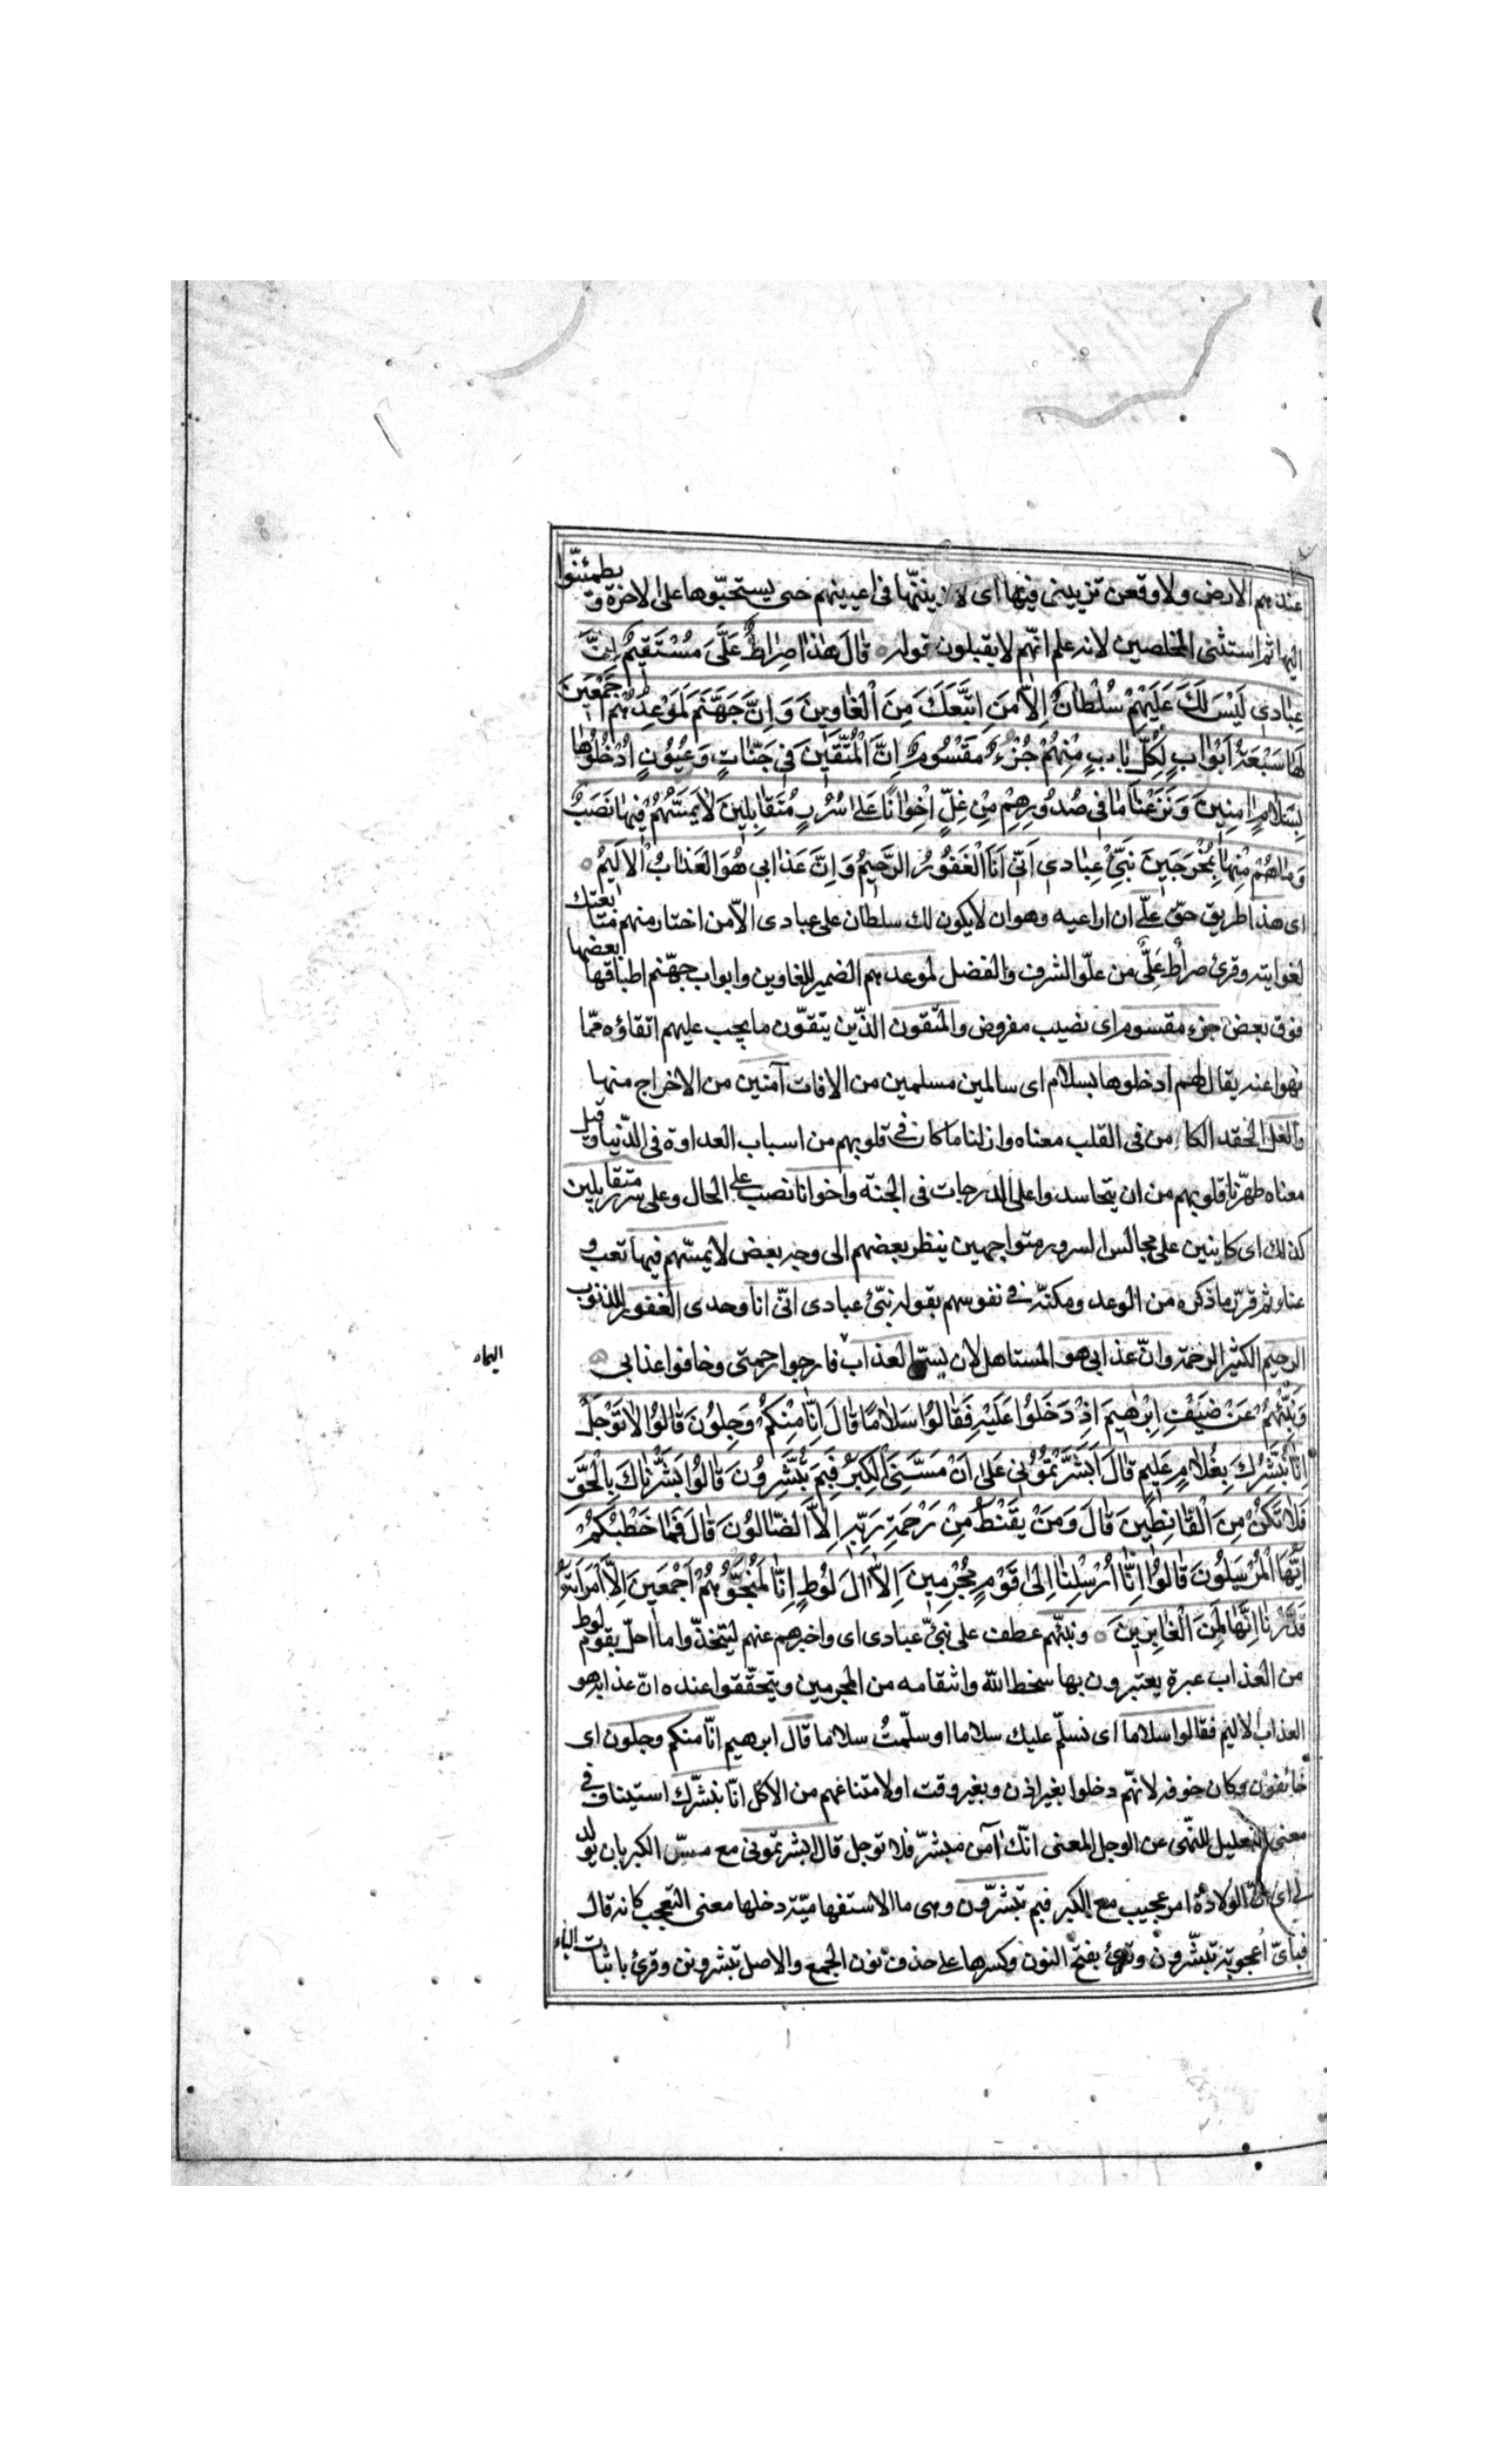 عندهم الارض ولاوقعن تزيينى فيها اى لازيننّها فى اعينهم حتى يستحبّوها على الاخرة و يطمئنّوا
اليها ثم استثنى المخلصين لانه علم انّهم لا يقبلون قوله قَالَ هٰذَا صِرَاطٌ عَلَىَّ مُسْتَقِيمٌ اِنَّ
عِبَادِى لَيْسَ لَكَ عَلَيْهِمْ سُلْطَانٌ اِلَّا مَنِ اتَّبَعَكَ مِنَ الْغَاوِينَ وَ اِنَّ جَهَنَّمَ لَمَوْعِدُهُمْ اَجْمَعِينَ
لَهَا سَبْعَةُ اَبْوَابٍ لِكُلِّ بَابٍ مِنْهُمْ جُزْءٌ مَقْسُومٌ اِنَّ الْمُتَّقِينَ فِى جَنَّاتٍ وَ عُيُونٍ اُدْخُلُوهَا
بِسَلَامٍ اٰمِنِينَ وَ نَزَعْنَا مَا فِى صُدُورِهِمْ مِنْ غِلٍّ اِخْوَانًا عَلَى سُرُرٍ مُتَقَابِلِينَ لَا يَمَسُّهُمْ فِيهَا نَصَبٌ
وَ مَا هُمْ مِنْهَا بِمُخْرَجِينَ نَبِّئْ عِبَادِى اَنِّى اَنَا الْغَفُورُ الرَّحِيمُ وَ اِنَّ عَذَابِى هُوَ الْعَذَابُ الْاَلِيمُ
اى هذا طريق حقّ علىّ ان اراعيه وهو ان لا يكون لك سلطان على عبادى الّا من اختار منهم متابعتك
لغوايته وقرئ صراط عَلِىٌّ من علوّ الشرف والفضل لموعدهم الضمير للغاوين وابواب جهّنم اطباقها بعضها
فوق بعض جزء مقسوم اى نصيب مفروض والمتّقون الذّين يتّقون ما يجب عليهم اتقاؤه ممّا
نهوا عنه يقال لهم ادخلوها بسلام اى سالمين مسلمين من الافات آمنين من الاخراج منها
والغل الحقد الكامن فى القلب معناه وازلنا ما كان فى قلوبهم من اسباب العداوة فى الدّنيا وقيل
معناه طهّرنا قلوبهم من ان يتحاسدوا على الدرجات فى الجنّة واخوانا نصب على الحال وعلى سرر متقابلين
كذلك اى كاينين على مجالس السرور متواجهين ينظر بعضهم الى وجه بعض لا يمسّهم فيها تعب و
عناء ثم قرّر ما ذكره من الوعد ومكنّه فى نفوسهم بقوله نبّئ عبادى انّى انا وحدى الغفور للذنوب
الرحيم الكثير الرحمة وانّ عذابى هو المستاهل لان يسمّى العذاب فارجوا رحمتى وخافوا عذابى
وَ نَبِّئْهُمْ عَنْ ضَيْفِ اِبْرٰهِيمَ اِذْ دَخَلُوا عَلَيْهِ فَقَالُوا سَلَامًا قَالَ اِنَّا مِنْكُمْ وَجِلُونَ قَالُوا لَا تَوْجَلْ
اِنَّا نُبَشِّرُكَ بِغُلَامٍ عَلِيمٍ قَالَ اَبَشَّرْتُمُونِى عَلَى اَنْ مَسَّنِىَ الْكِبَرُ فَبِمَ تُبَشِّرُونَ قَالُوا بَشَّرْنَاكَ بِالْحَقِّ
فَلَا تَكُنْ مِنَ الْقَانِطِينَ قَالَ وَ مَنْ يَقْنَطُ مِنْ رَحْمَةِ رَبِّهِ اِلَّا الضَّالُّونَ قَالَ فَمَا خَطْبُكُمْ
اَيُّهَا الْمُرْسَلُونَ قَالُوا اِنَّا اُرْسِلْنَا اِلَى قَوْمٍ مُجْرِمِينَ اِلَّا اٰلَ لُوطٍ اِنَّا لَمُنَجُّوهُمْ اَجْمَعِينَ اِلَّا امْرَاَتَهُ
قَدَّرْنَا اِنَّهَا لَمِنَ الْغَابِرِينَ ونبّئهم عطف على نبّئ عبادى اى واخبرهم عنهم ليتخذوا ما احلّ بقوم لوط
من العذاب عبرة يعتبرون بها سخط اللّه وانتقامه من المجرمين ويتحقّقوا عنده انّ عذابه هو
العذاب الاليم فقالوا سلاما اى نسلّم عليك سلاما او سلّمتُ سلاما قال ابرهيم انّا منكم وجلون اى
خائفون وكان خوفه لانهّم دخلوا بغير اذن وبغير وقت او لامتناعهم من الاكل انّا نبشّرك استيناف فى
معنى التعليل للنّهى عن الوجل المعنى انّك آمن مبشّر فلا توجل قال ابشرتمونى مع مسّ الكبر بان يولد
لى اى انّ الولادة امر عجيب مع الكبر فبم تبشّرون وهى ما الاستفهاميّة دخلها معنى التعجب كانه قال
فباىّ اعجوبة تبشّرون وقرئ بفتح النون وكسرها على حذف نون الجمع والاصل تبشروننى وقرئ باثبات الياء